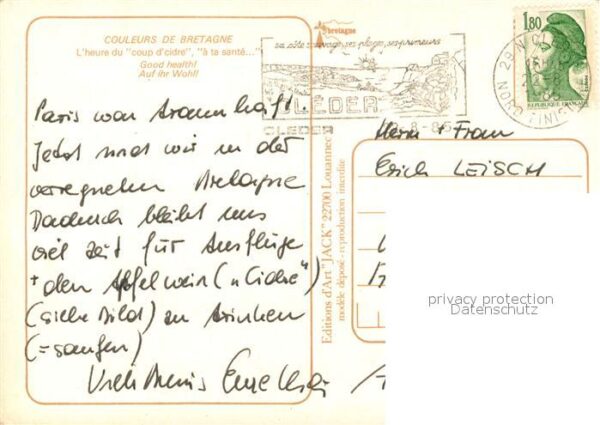 COULEURS DE BRETAGNE
L'heure du "coup d'cidre", "à ta santé..."
Good health!
Auf Ihr Wohl!
bretagne
sa côte sauvage, ses plages, ses primeurs
CLEDER
CLEDER
1.80
REPUBLIQUE FRANÇAISE
NORD FINIS
Paris war traumhaft.
Jetzt sind wir in der
verregneten Bretagne
Dadurch bleibt uns
viel Zeit für Ausflüge
+ den Apfelwein („Cidre“)
(siehe Bild) zu trinken
(=saufen)
Viele
Herrn + Frau
Erich LEISCH
Editions d'Art "JACK" 22700 Louannec
modèle déposé - reproduction interdite
privacy protection
Datenschutz